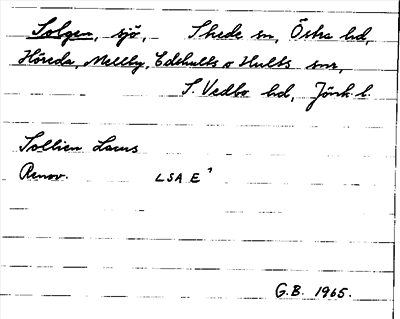 Solgen, sjö, Skede sn, Östra hd,
Höreda, Mellby, Edshults o Hults snr,
S. Vedbo hd, Jönk. l.
Sollien Lacus
Renov. LSA E¹
G.B. 1965.